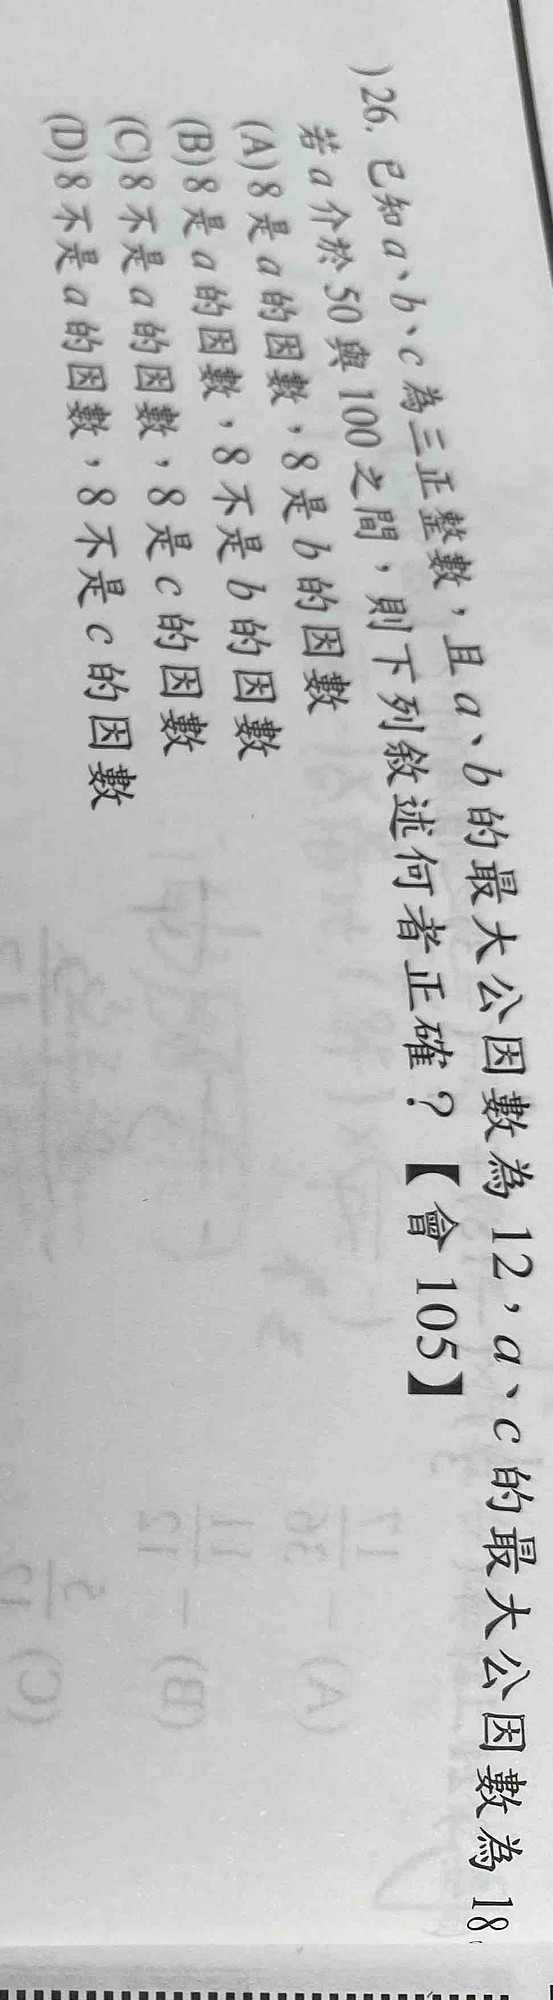 )26. 已知a、b、c為三正整數，且a、b的最大公因數為12，a、c的最大公因數為18。
若a介於50與100之間，則下列敘述何者正確？【會105】
(A)8是a的因數，8是b的因數
(B)8是a的因數，8不是b的因數
(C)8不是a的因數，8是c的因數
(D)8不是a的因數，8不是c的因數